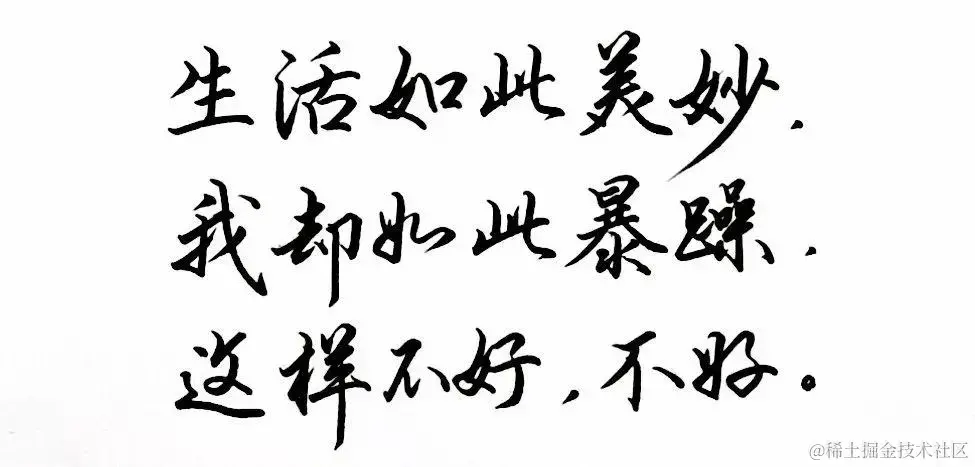 生活如此美妙，
我却如此暴躁，
这样不好，不好。
@稀土掘金技术社区